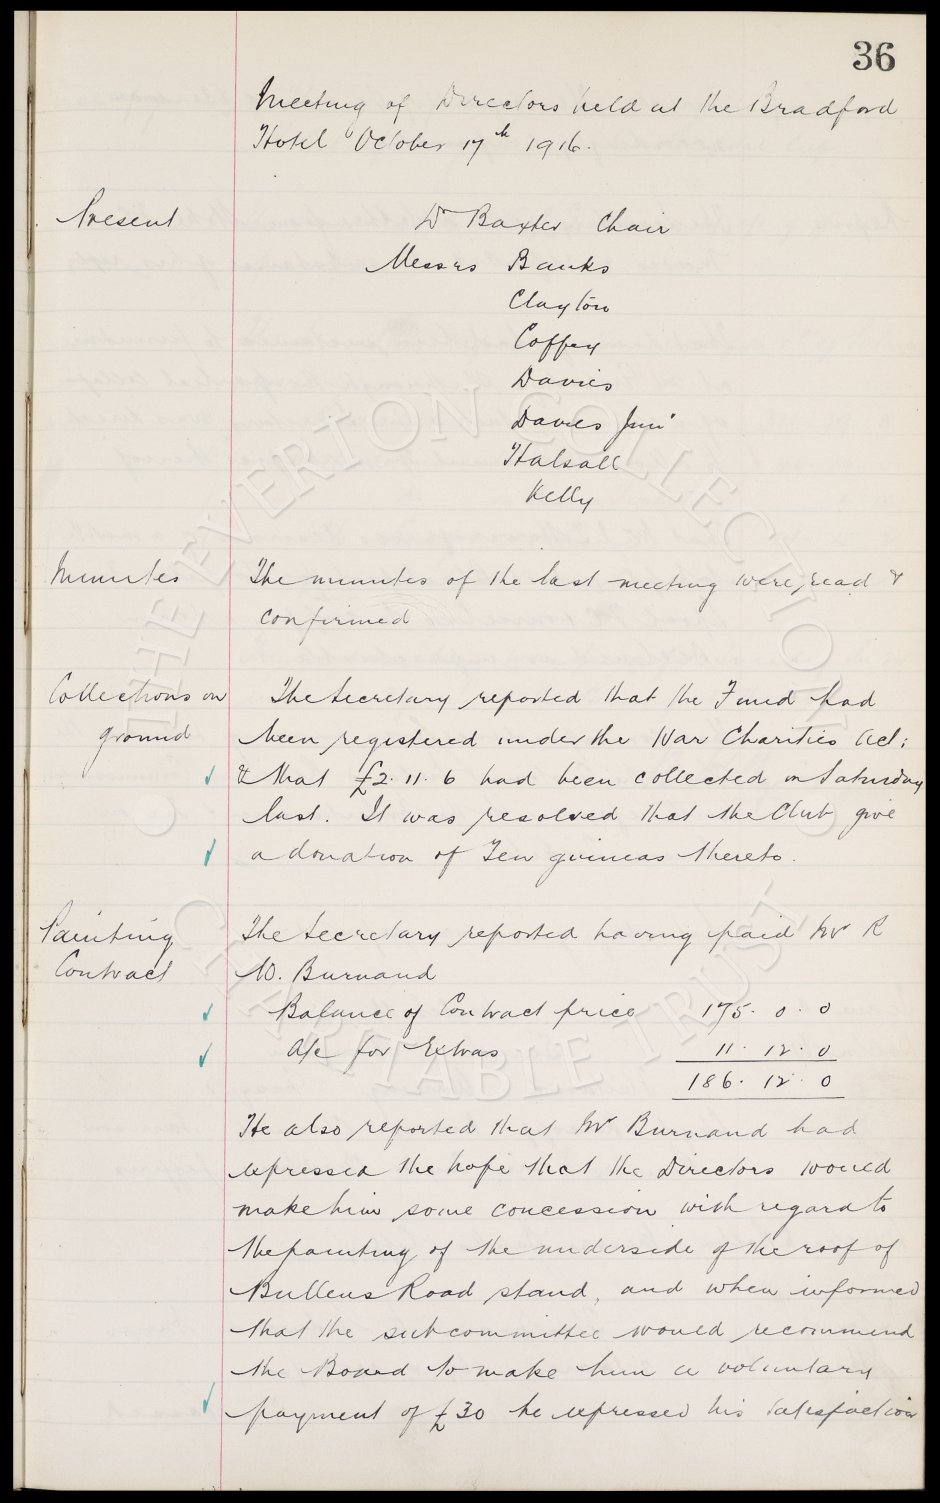 36
Meeting of Directors held at the Bradford
Hotel October 17th 1916.
Present
Dr Baxter Chair
Messrs Banks
Clayton
Coffey
Davies
Davies Junr
Halsall
Kelly
Minutes
The minutes of the last meeting were read &
confirmed
Collections on
ground
The Secretary reported that the Fund had
been registered under the War Charities Act;
& that £2. 11. 6 had been collected on Saturday
last. It was resolved that the Club give
a donation of Ten guineas thereto.
Painting
Contract
The Secretary reported having paid Mr R
W. Burnand
Balance of Contract price 175. 0. 0
A/c for Extras 11. 12. 0
186. 12. 0
He also reported that Mr Burnand had
expressed the hope that the Directors would
make him some concession with regard to
the painting of the underside of the roof of
Bullens Road stand, and when informed
that the subcommittee would recommend
the Board to make him a voluntary
payment of £30 he expressed his satisfaction
THE EVERTON COLLECTION
CHARITABLE TRUST